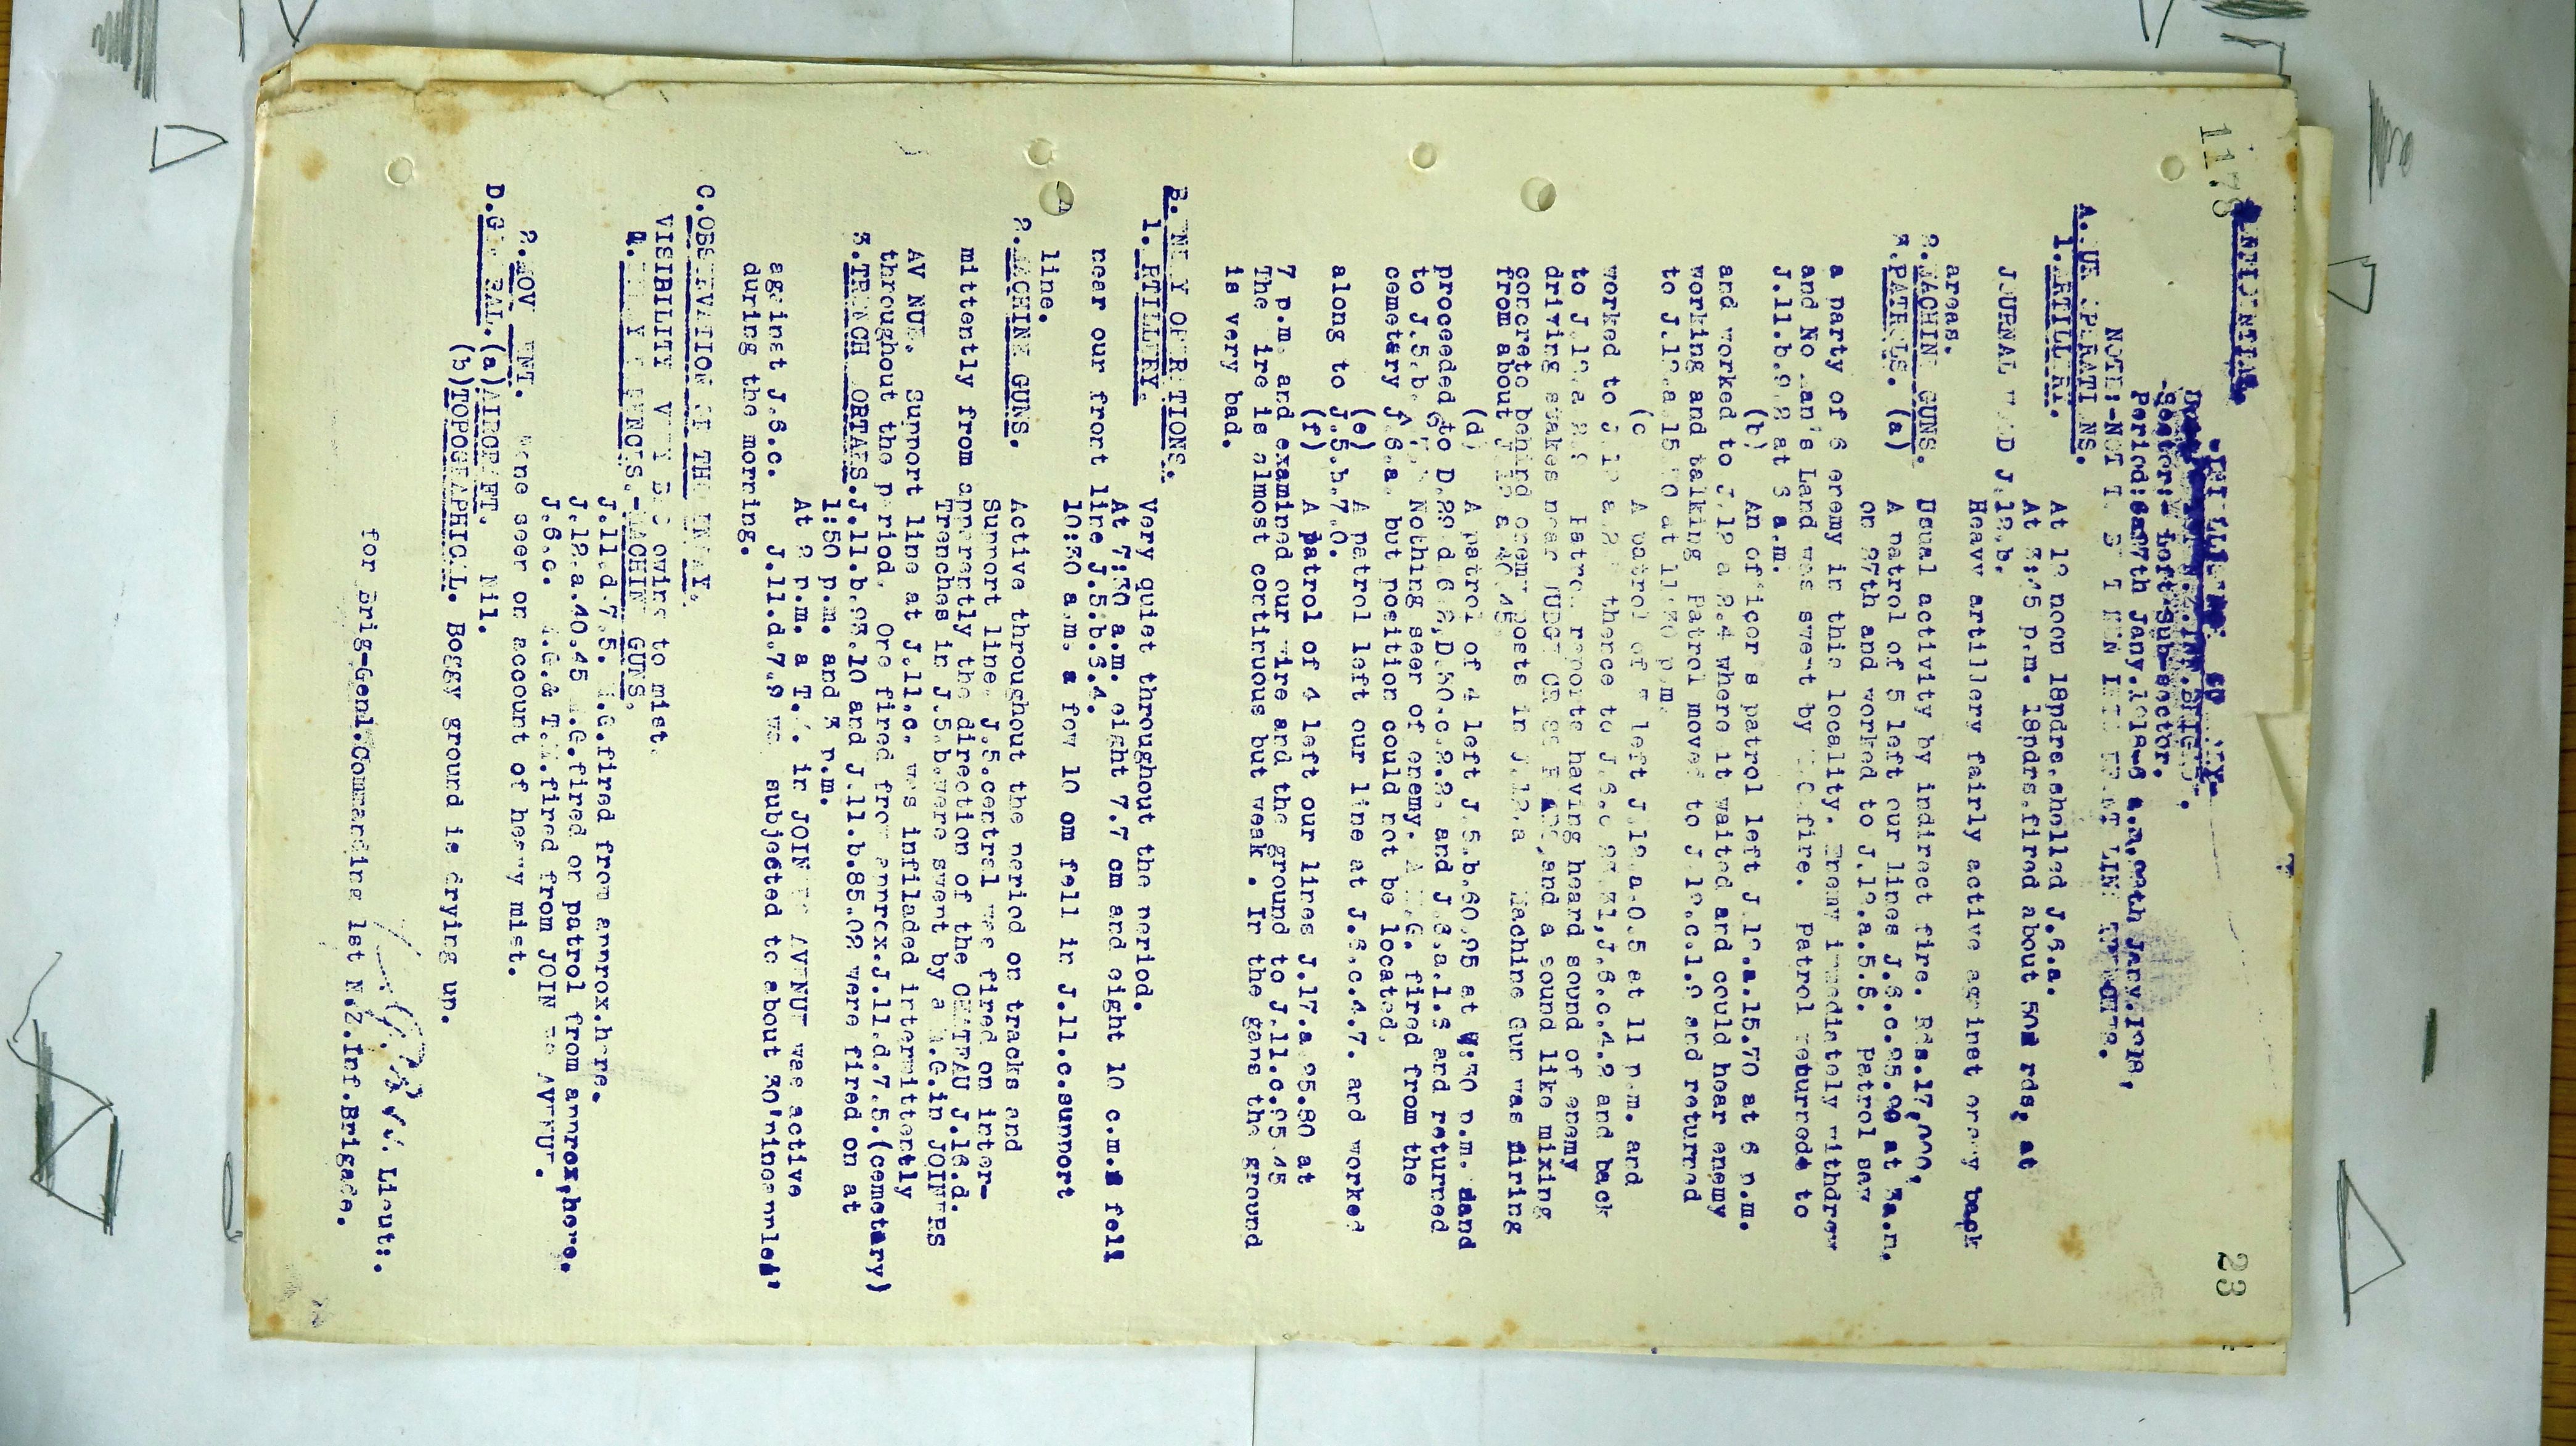 1178
23
CONFIDENTIAL.
INTELLIGENCE SUMMARY
Sector:- Left Sub-sector.
Period:6am 27th Jany.1918-6 a.m.28th Jany.1918,
NOTE:-NOT TO BE TAKEN INTO FRONT LINE TRENCHES.
A. OUR OPERATIONS.
1.ARTILLERY.
At 12 noon 18pdrs.shelled J.6.a.
At 3:45 p.m. 18pdrs.fired about 50 rds, at
JOURNAL WOOD J.12.b.
Heavy artillery fairly active against enemy back
areas.
2.MACHINE GUNS.
Usual activity by indirect fire. Rds.17,000,
3.PATROLS. (a)
A patrol of 5 left our lines J.6.c.25.00 at 3a.m,
on 27th and worked to J.12.a.5.6. Patrol saw
a party of 6 enemy in this locality. Enemy immediately withdrew
and No Man's Land was swept by M.G.fire. Patrol returned to
J.11.b.9.2 at 3 a.m.
(b) An officer's patrol left J.12.a.15.70 at 6 p.m.
and worked to J.12.a.2.4 where it waited and could hear enemy
working and talking Patrol moved to J.12.c.1.9 and returned
to J.12.a.15.70 at 11:30 p.m.
(c A patrol of left J.12.a.0.5 at 11 p.m. and
worked to thence to J.6.c and back
to J.12.a Patrol reports having heard sound of enemy
driving stakes near JUDGE and a sound like mixing
concrete behind enemy posts in J.12.a Machine Gun was firing
from about J.12.a.40.45.
(d) A patrol of 4 left J.5.b.60.05 at 4:30 p.m. and
proceeded to D.29.d.6.2,D.30.c.2.2. and J.6.a.1.8 and returned
to J.5.b. Nothing seen of enemy. A M.G. fired from the
cemetary J.6.a. but position could not be located.
(e) A patrol left our line at J.6.c.4.7. and worked
along to J.5.b.7.0.
(f) A patrol of 4 left our lines J.17.a.25.80 at
7 p.m. and examined our wire and the ground to J.11.c.95.45
The wire is almost continuous but weak. In the gaps the ground
is very bad.
B. ENEMY OPERATIONS.
1. ARTILLERY.
Very quiet throughout the period.
At 7:30 a.m. eight 7.7 cm and eight 10 c.m.s fell
near our front line J.5.b.3.4.
10:30 a.m. a few 10 cm fell in J.11.c.support
line.
2.MACHINE GUNS.
Active throughout the period on tracks and
Support line. J.5.central was fired on inter-
mittently from apparently the direction of the CHATEAU J.16.d.
Trenches in J.5.b.were swept by a M.G.in JOINERS
AVENUE. Support line at J.11.c. was infiladed intermittently
throughout the period. One fired from approx.J.11.d.7.5.(cemetary)
3.TRENCH MORTARS.
J.11.b.93.10 and J.11.b.85.02 were fired on at
1:50 p.m. and 3 p.m.
At 2 p.m. a T.M. in JOINERS AVENUE was active
against J.6.c. J.11.d.7.9 was subjected to about 30'pineapples"
during the morning.
C.OBSERVATION OF THE ENEMY.
VISIBILITY VERY BAD owing to mist.
1.ENEMY DEFENCES.-MACHINE GUNS.
J.11.d.7.5. M.G.fired from approx.here.
J.12.a.40.45 M.G.fired on patrol from approx,here.
J.6.c. M.G.& T.M.fired from JOINERS AVENUE.
2.MOVEMENT. None seen on account of heavy mist.
D.GENERAL.(a)AIRCRAFT. Nil.
(b)TOPOGRAPHICAL. Boggy ground is drying up.
Lieut:.
for Brig-Genl.Commanding 1st N.Z.Inf.Brigade.